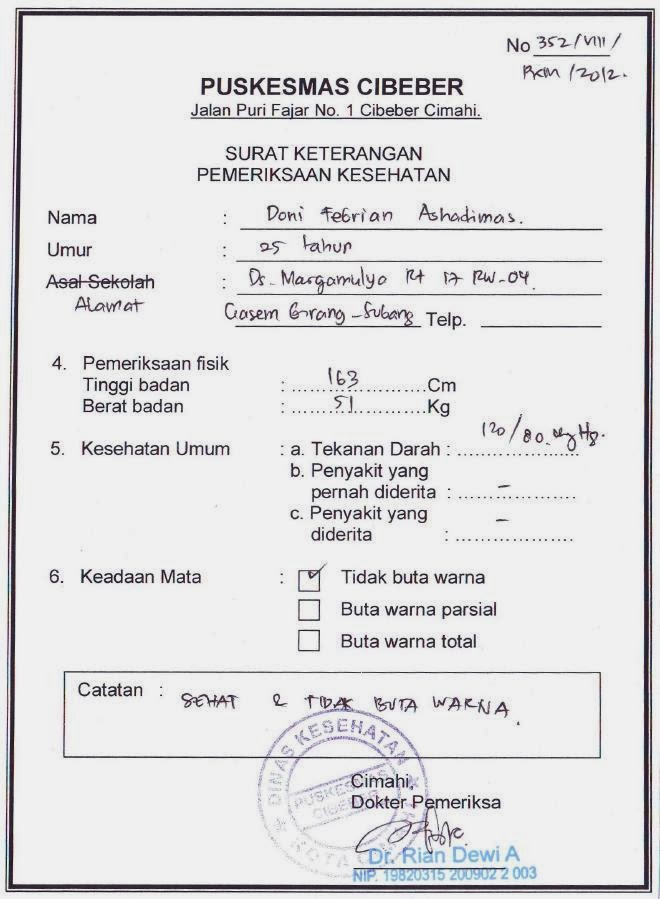 No 352/VIII/
PKM/2012.
PUSKESMAS CIBEBER
Jalan Puri Fajar No. 1 Cibeber Cimahi.
SURAT KETERANGAN
PEMERIKSAAN KESEHATAN
Nama : Doni Febrian Ashadimas.
Umur : 25 tahun
Asal Sekolah : Ds. Margamulyo Rt 17 RW-04
Alamat Ciasem Girang-Subang Telp.
4. Pemeriksaan fisik
Tinggi badan : 163 Cm
Berat badan : 51 Kg
5. Kesehatan Umum : a. Tekanan Darah : 120/80 mg Hg.
b. Penyakit yang
pernah diderita : –
c. Penyakit yang –
diderita :
6. Keadaan Mata : ✓ Tidak buta warna
Buta warna parsial
Buta warna total
Catatan : SEHAT & TIDAK BUTA WARNA.
DINAS KESEHATAN
PUSKESMAS
CIBEBER
KOTA CIMAHI
Cimahi,
Dokter Pemeriksa
Dr. Rian Dewi A
NIP. 19820315 200902 2 003